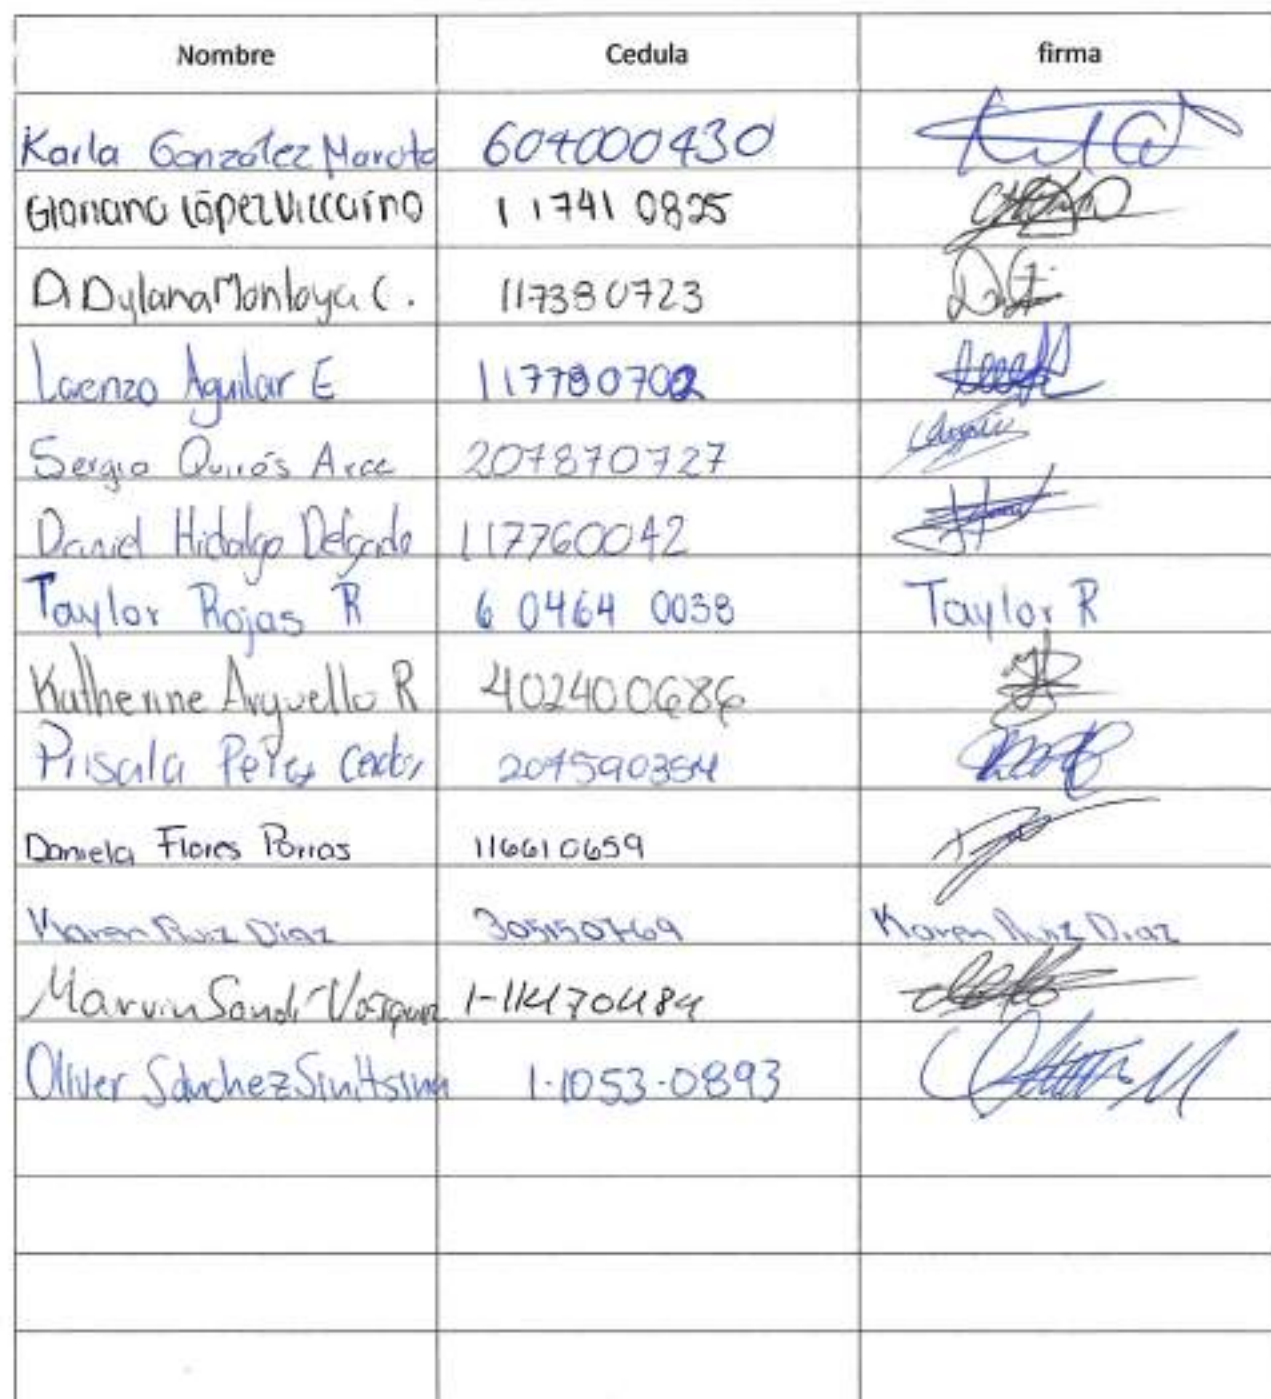 Nombre Cedula firma
Karla González Marota 604000430
Gloriana López Viccaíno 1 1741 0825
D Dylana Montoya C. 117380723
Lorenzo Aguilar E 117780702
Sergio Quirós Arce 207870727
Daniel Hidalgo Delgado 117760042
Taylor Rojas R 6 0464 0038 Taylor R
Katherine Arguello R 402400686
207590354
Daniela Flores Porras 116610659
Karen Ruiz Diaz 305150769 Karen Ruiz Diaz
Marvin Sandí 1-11470484
Oliver Sánchez Sinitsina 1-1053-0893